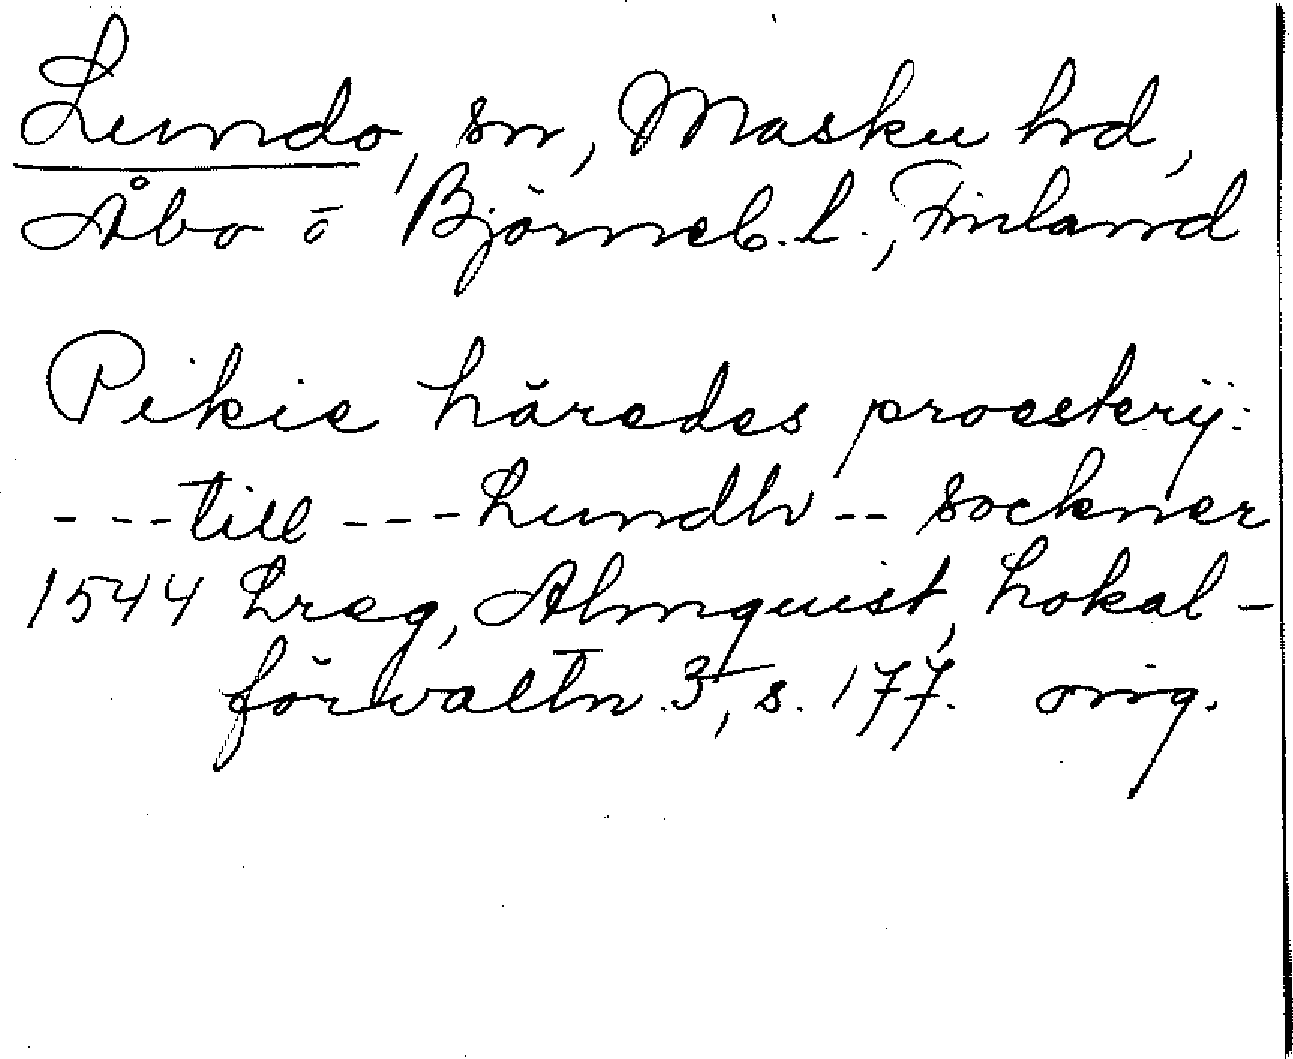 Lundo, sn, Masku hd,
Åbo o Björneb. l., Finland
Pikie häredes proesterij:
---till---Lundh -- sockner
1544 Lreg, Almquist, Lokal-
förvaltn. 3, s. 177. orig.